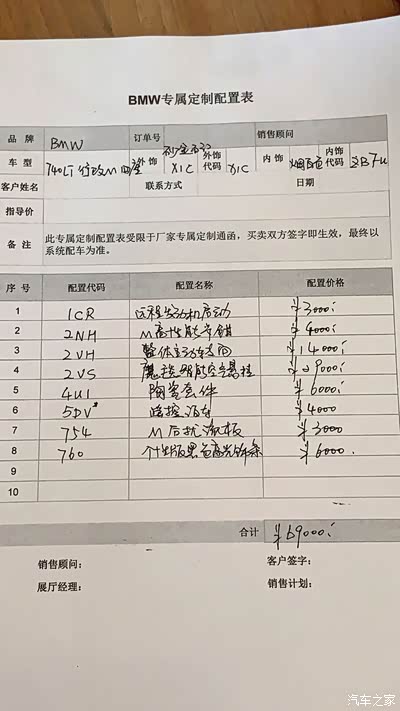 BMW专属定制配置表
品 牌 BMW 订单号 销售顾问
车 型 740LI 行政M 外饰 X1C 外饰代码 X1C 内饰 烟白色 内饰代码
客户姓名 联系方式 日期
指导价
备 注 此专属定制配置表受限于厂家专属定制通函，买卖双方签字即生效，最终以
系统配车为准。
序 号 配置代码 配置名称 配置价格
1 1CR 远程发动机启动 ¥3000
2 2NH M高性能步钳 ¥4000
3 2VH 整体主动转向 ¥14000
4 2VS 魔毯智能空气悬挂 ¥29000
5 4U1 陶瓷套件 ¥6000
6 5DV 遥控泊车 ¥4000
7 754 M后扰流板 ¥3000
8 760 个性版黑色高光饰条 ¥6000.
9
10
合计 ¥69000
销售顾问: 客户签字:
展厅经理: 销售计划:
汽车之家